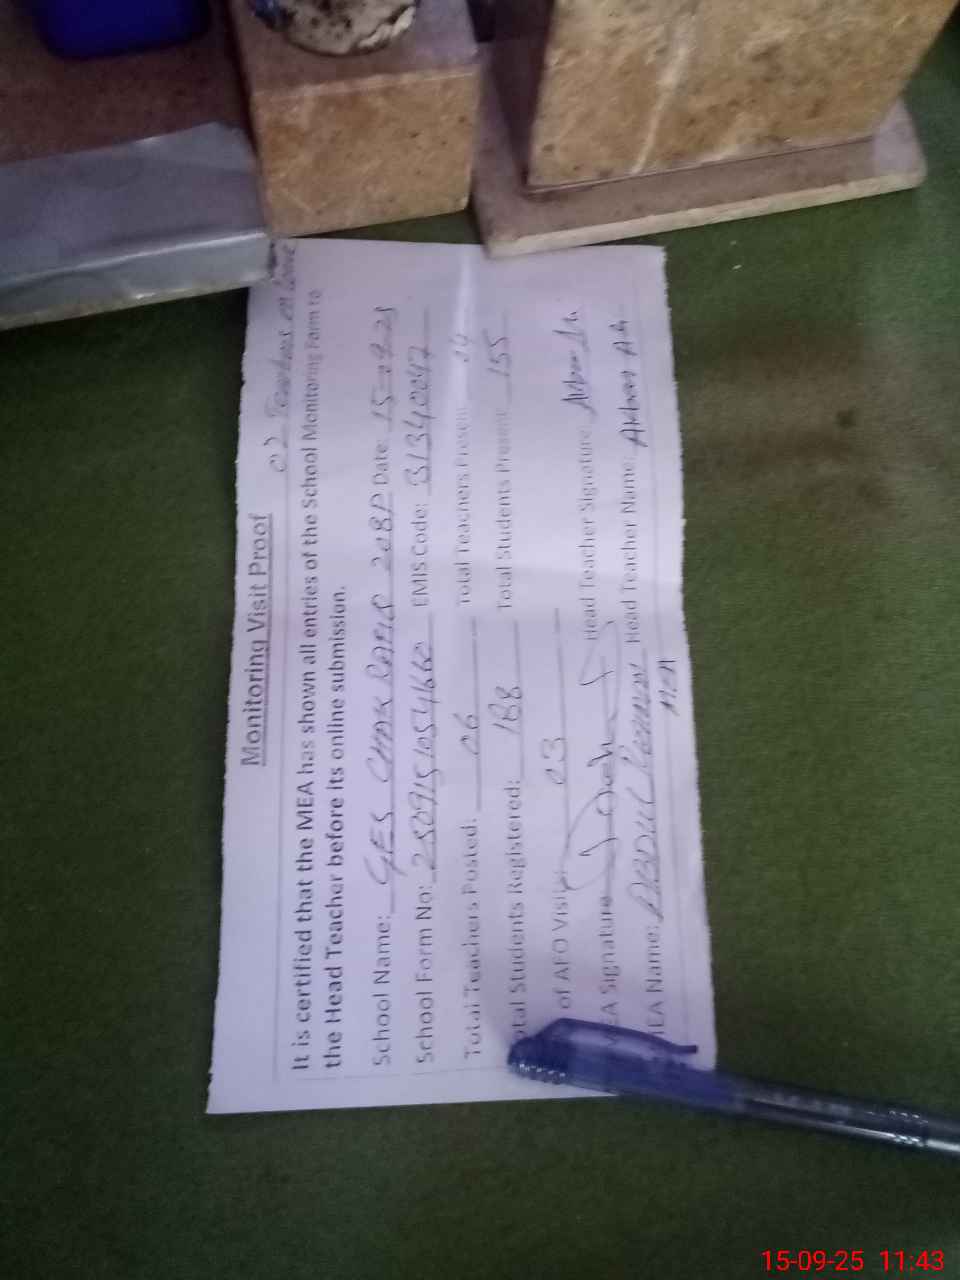 02 Teachers on leave
Monitoring Visit Proof
It is certified that the MEA has shown all entries of the School Monitoring Form to
the Head Teacher before its online submission.
School Name: GES CHAK RAFIQ 208P Date: 15-09-25
School Form No: 2509151054660 EMIS Code: 31340047
Total Teachers Posted: 06 Total Teachers Present: 04
otal Students Registered: 188 Total Students Present: 155
of AEO Visits: 03
MEA Signature Head Teacher Signature:
MEA Name: ABDUL Head Teacher Name: Akbar Ali
MEA
15-09-25 11:43